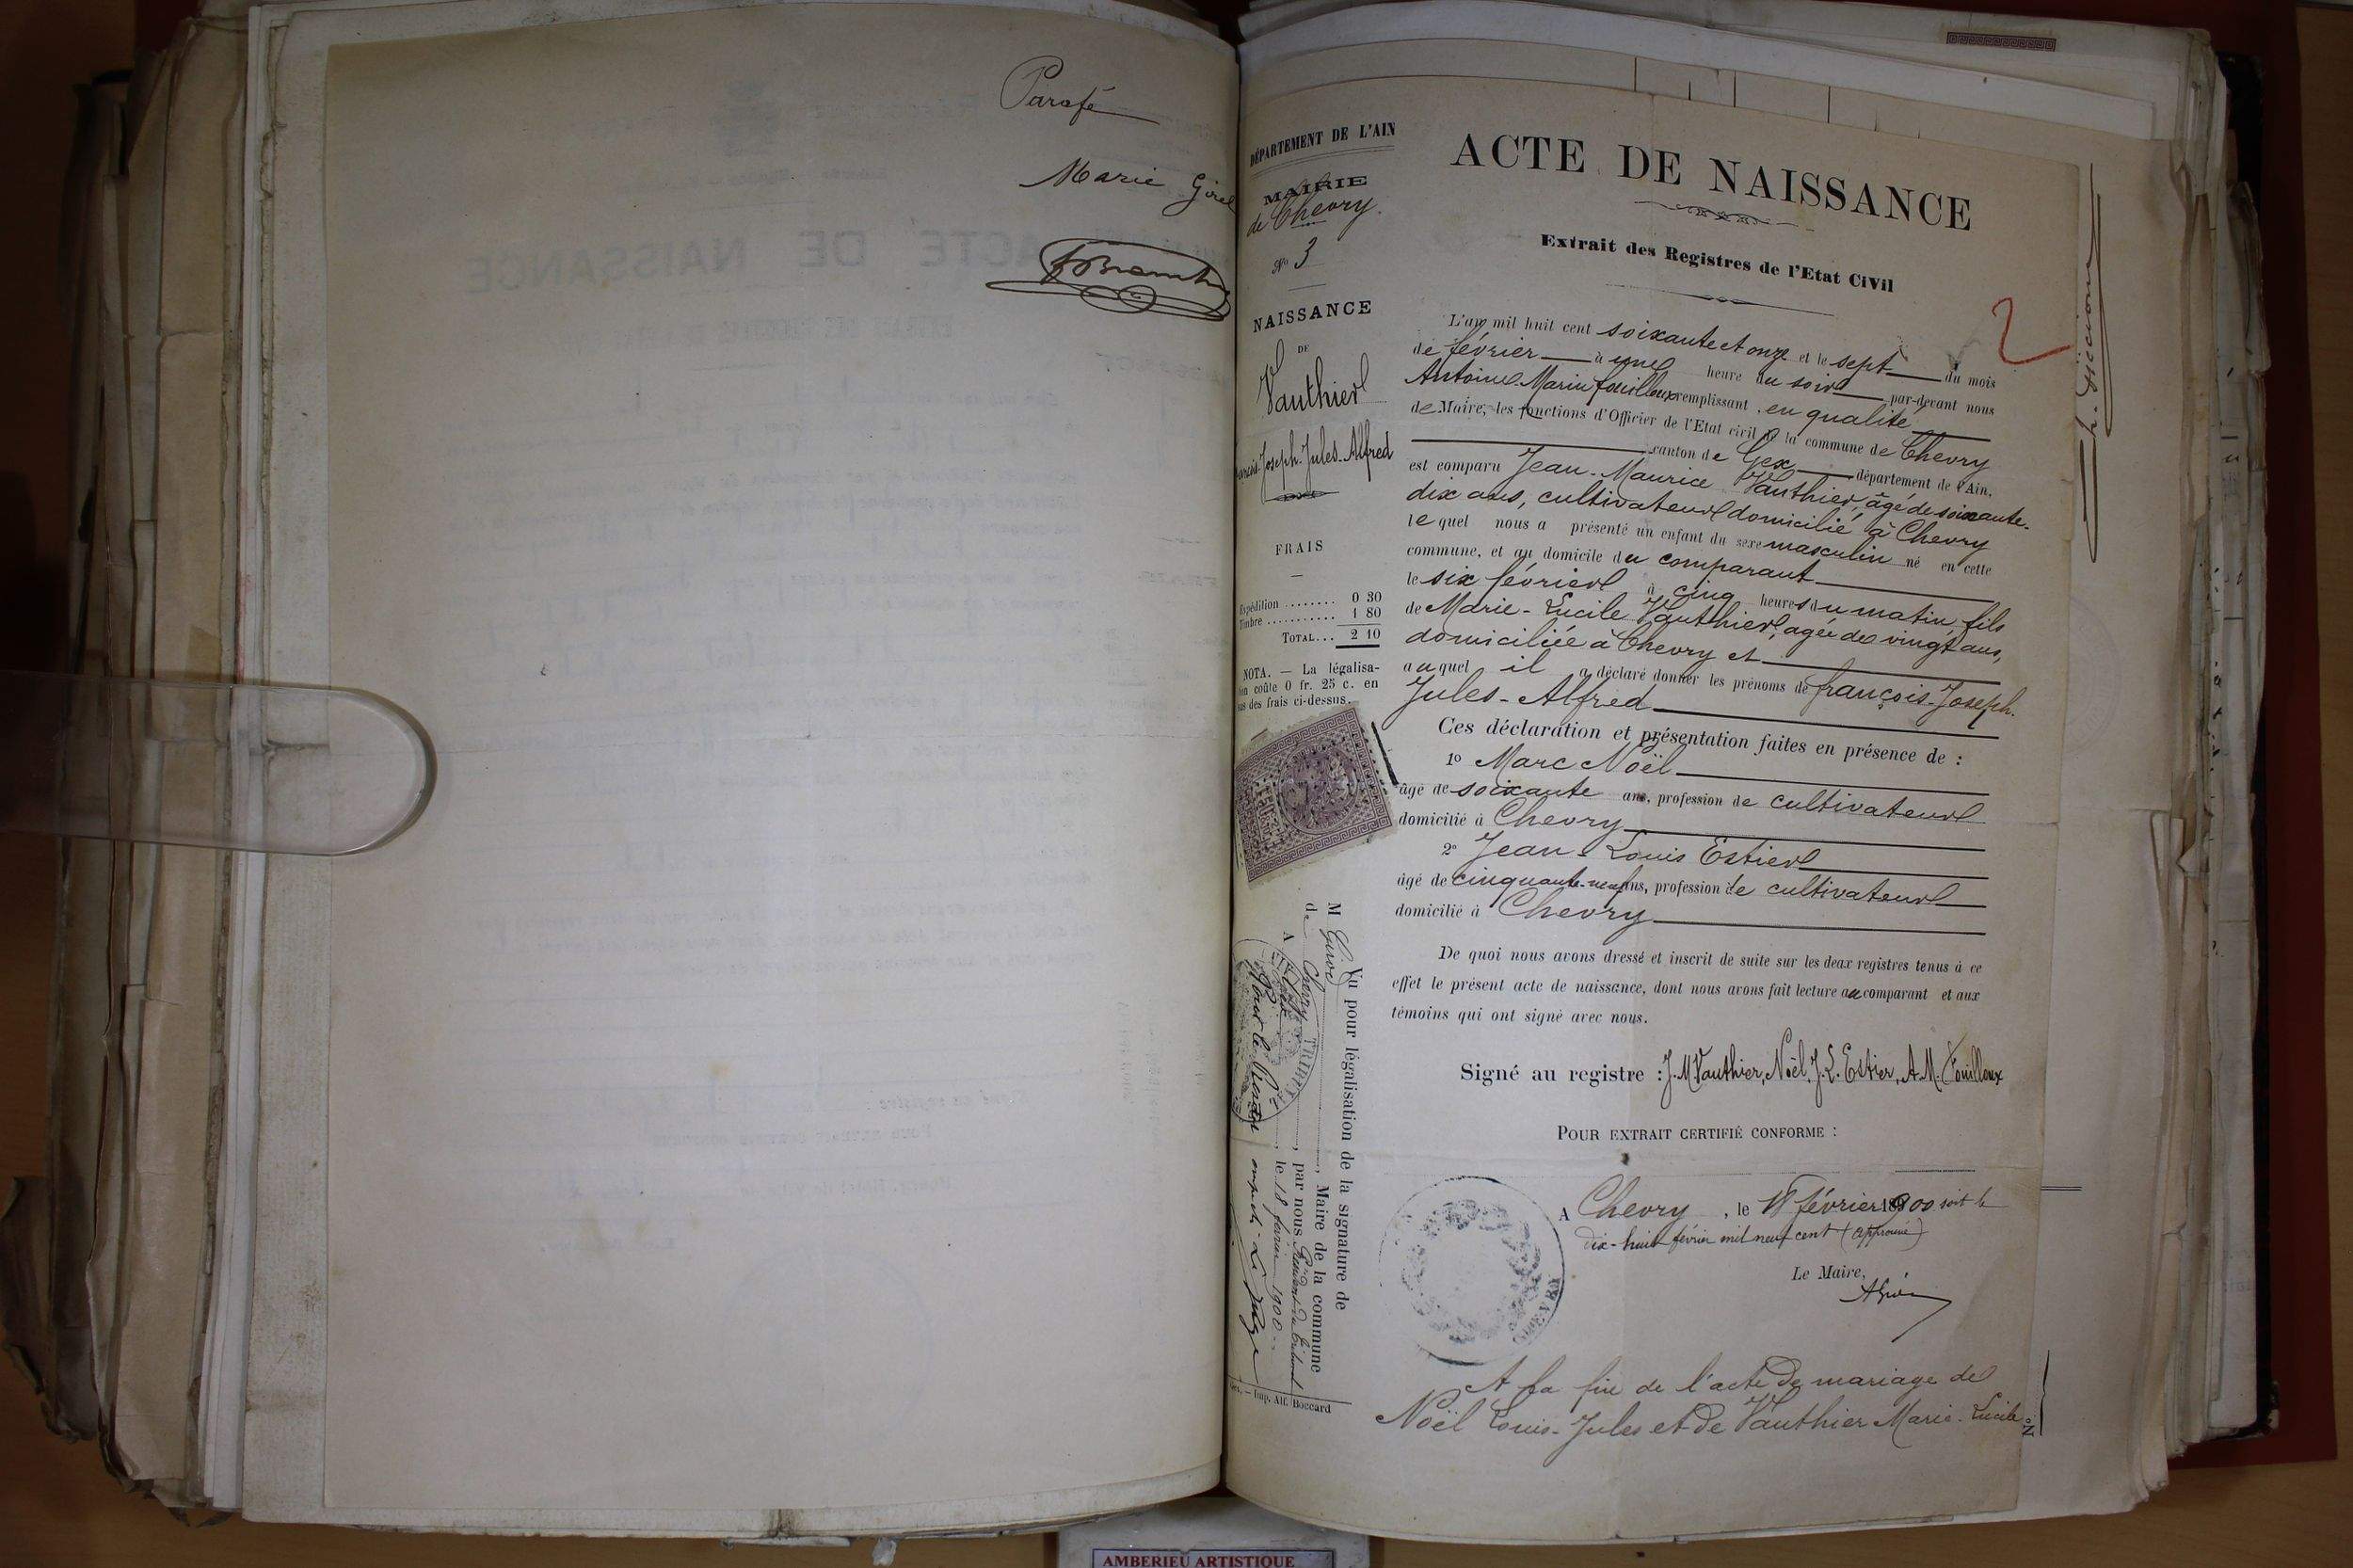 Parafé
Marie Girel
DÉPARTEMENT DE L'AIN
MAIRIE
de Chevry.
No 3
NAISSANCE
DE
Vauthier
Joseph-Jules-Alfred
FRAIS
Expédition ........ 0 30
Timbre ........... 1 80
TOTAL... 2 10
NOTA. — La légalisa-
coûte 0 fr. 25 c. en
des frais ci-dessus.
Vu pour légalisation de la signature de
M Giro , Maire de la commune
de Chevry , par nous Président du tribunal
A , le 18 février 1900
Pour le Président
Le Juge
Imp. Alf. Boccard
ACTE DE NAISSANCE
Extrait des Registres de l'Etat Civil
2
L'an mil huit cent soixante et onze et le sept du mois
de février à une heure du soir par-devant nous
Antoine-Marin Fouilloux remplissant, en qualité
de Maire, les fonctions d'Officier de l'Etat civil de la commune de Chevry
canton de Gex département de l'Ain,
est comparu Jean-Maurice Vauthier, âgé de soixante-
dix ans, cultivateur domicilié à Chevry
lequel nous a présenté un enfant du sexe masculin né en cette
commune, et au domicile du comparant
le six février à cinq heures du matin fils
de Marie-Lucile Vauthier, agée de vingt ans,
domiciliée à Chevry et
auquel il a déclaré donner les prénoms de françois-Joseph-
Jules-Alfred
Ces déclaration et présentation faites en présence de :
1º Marc Noël
âgé de soixante ans, profession de cultivateur
domicilié à Chevry
2º Jean-Louis Estier
âgé de cinquante-neuf ans, profession de cultivateur
domicilié à Chevry
De quoi nous avons dressé et inscrit de suite sur les deux registres tenus à ce
effet le présent acte de naissance, dont nous avons fait lecture au comparant et aux
témoins qui ont signé avec nous.
Signé au registre : J. M Vauthier, Noël, J. L. Estier, A. M. Fouilloux
POUR EXTRAIT CERTIFIÉ CONFORME :
A Chevry , le 18 février 1900 soit le
dix-huit février mil neuf cent (approuvé)
Le Maire,
CHEVRY
A la fin de l'acte de mariage de
Noël Louis-Jules et de Vauthier Marie-Lucile
No
AMBERIEU ARTISTIQUE